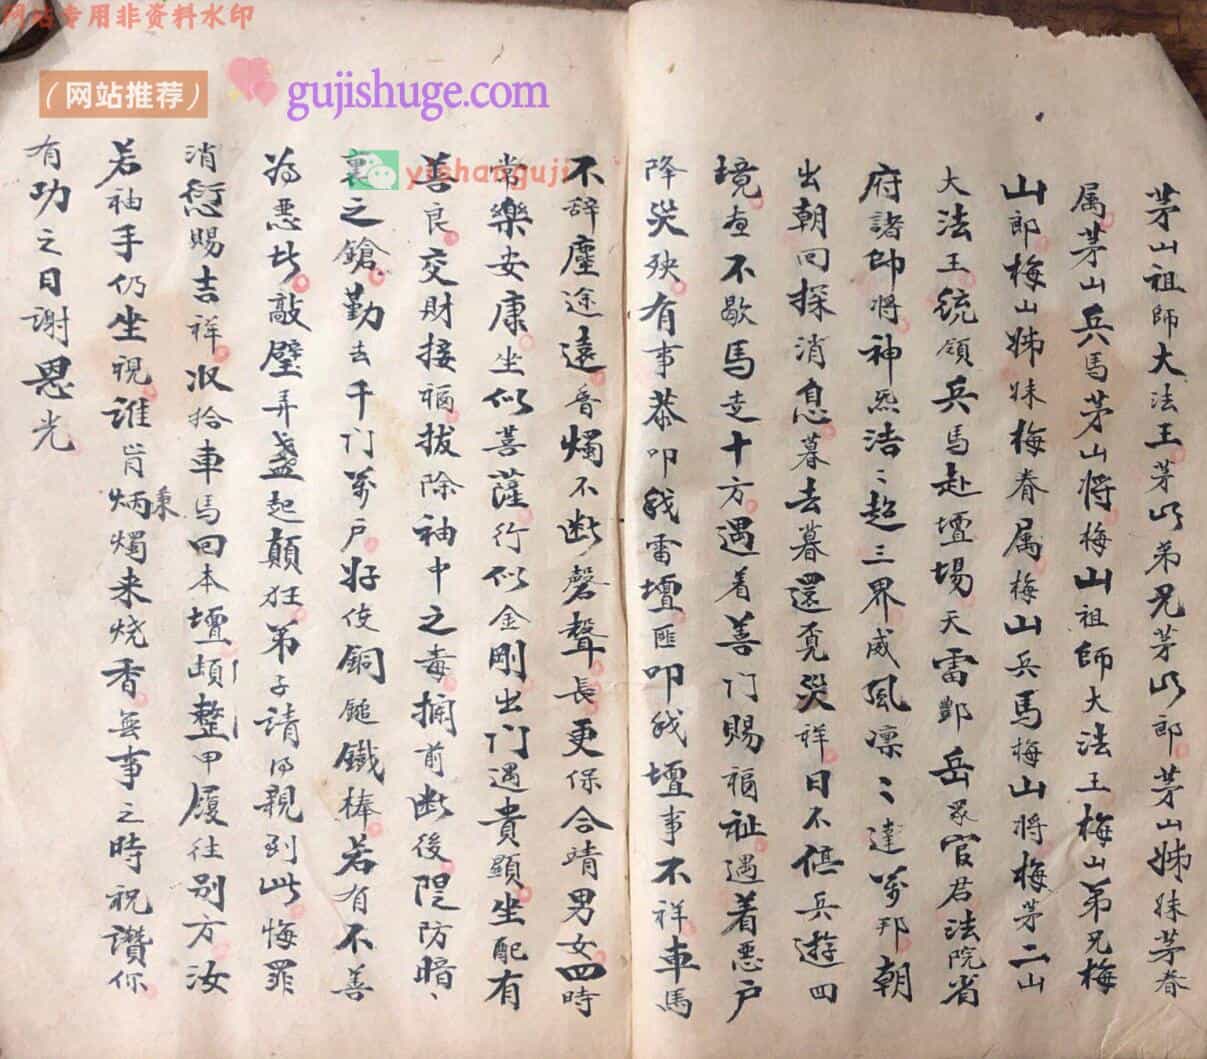 网站专用非资料水印
（网站推荐）
gujishuge.com
yishanguji
茅山祖師大法王茅山弟兄茅山郎茅山姊妹茅眷
属茅山兵馬茅山將梅山祖師大法王梅山弟兄梅
山郎梅山姊妹梅眷属梅山兵馬梅山將梅茅二山
大法王統領兵馬赴壇場天雷酆岳眾官君法院省
府諸帥將神炁浩〻超三界威風凛〻達萬邦朝
出朝回探消息暮去暮還覓災祥日不停兵遊四
境夜不歇馬走十方遇着善门賜福祉遇着惡户
降災殃有事恭叩我雷壇匪叩我壇事不祥車馬
不辞塵途遠香燭不断磬聲長更保合靖男女四時
常樂安康坐似菩薩行似金剛出门遇貴顯坐配有
善良交財接福拔除袖中之毒攔前断後隄防暗〻
裏之鎗勤去千门萬户好使銅鎚鐵棒若有不善
為惡者敲壁弄盏起顛狂弟子請汝親到此悔罪
消愆賜吉祥収拾車馬回本壇頓整甲履往别方汝
若袖手仍坐視誰肯炳秉燭来烧香無事之時祝讚你
有功之日謝恩光